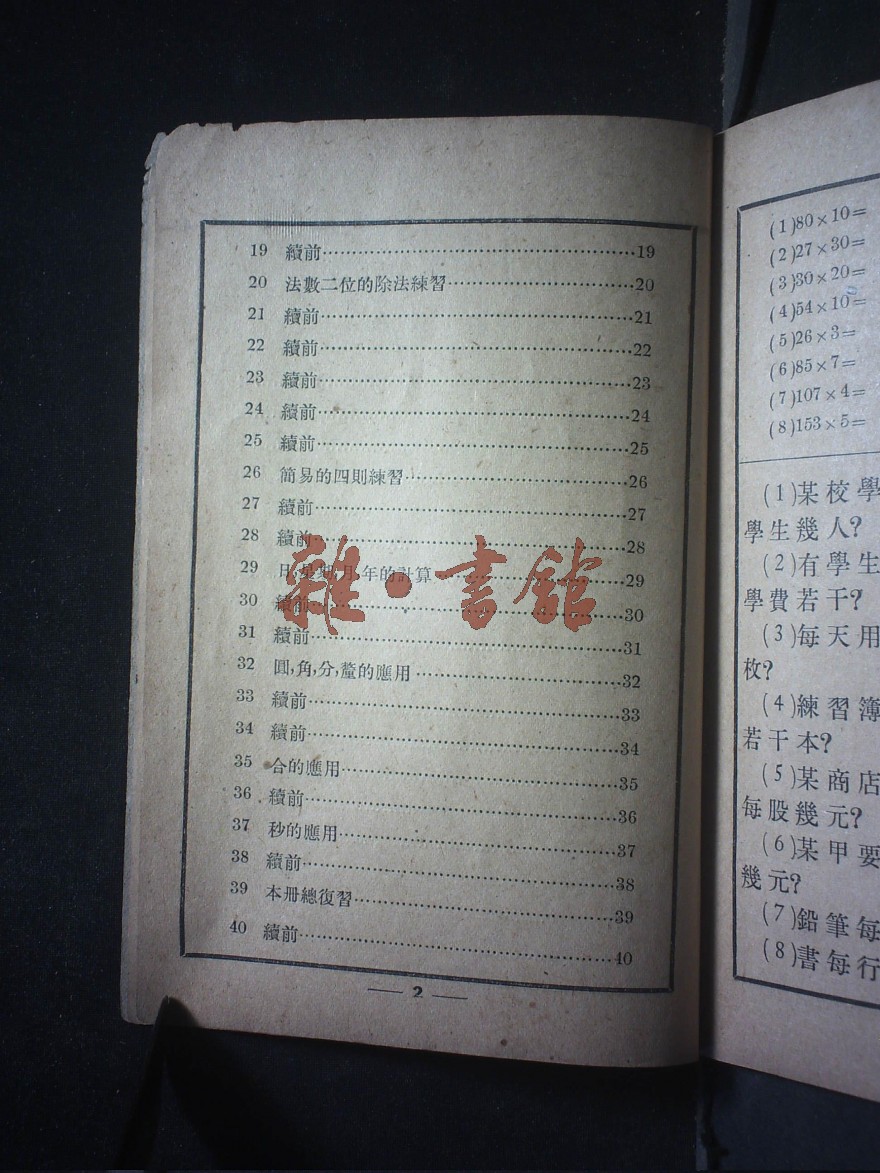 19 續前…………………………19
20 法數二位的除法練習………………20
21 續前…………………………21
22 續前…………………………22
23 續前…………………………23
24 續前…………………………24
25 續前…………………………25
26 簡易的四則練習…………………26
27 續前…………………………27
28 續前…………………………28
29 日,星期,月,年的計算………………29
30 續前…………………………30
31 續前…………………………31
32 圓,角,分,釐的應用…………………32
33 續前…………………………33
34 續前…………………………34
35 合的應用………………………35
36 續前…………………………36
37 秒的應用………………………37
38 續前…………………………38
39 本冊總復習……………………39
40 續前…………………………40
— 2 —
雜·書館
(1)80×10=
(2)27×30=
(3)30×20=
(4)54×10=
(5)26×3=
(6)85×7=
(7)107×4=
(8)153×5=
(1)某校學
學生幾人?
(2)有學生
學費若干?
(3)每天用
枚?
(4)練習簿
若干本?
(5)某商店
每股幾元?
(6)某甲要
幾元?
(7)鉛筆每
(8)書每行